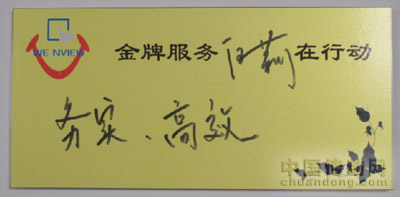 WE NVIEW
金牌服务 在行动
务实、高效
中国传动网
chuandong.com